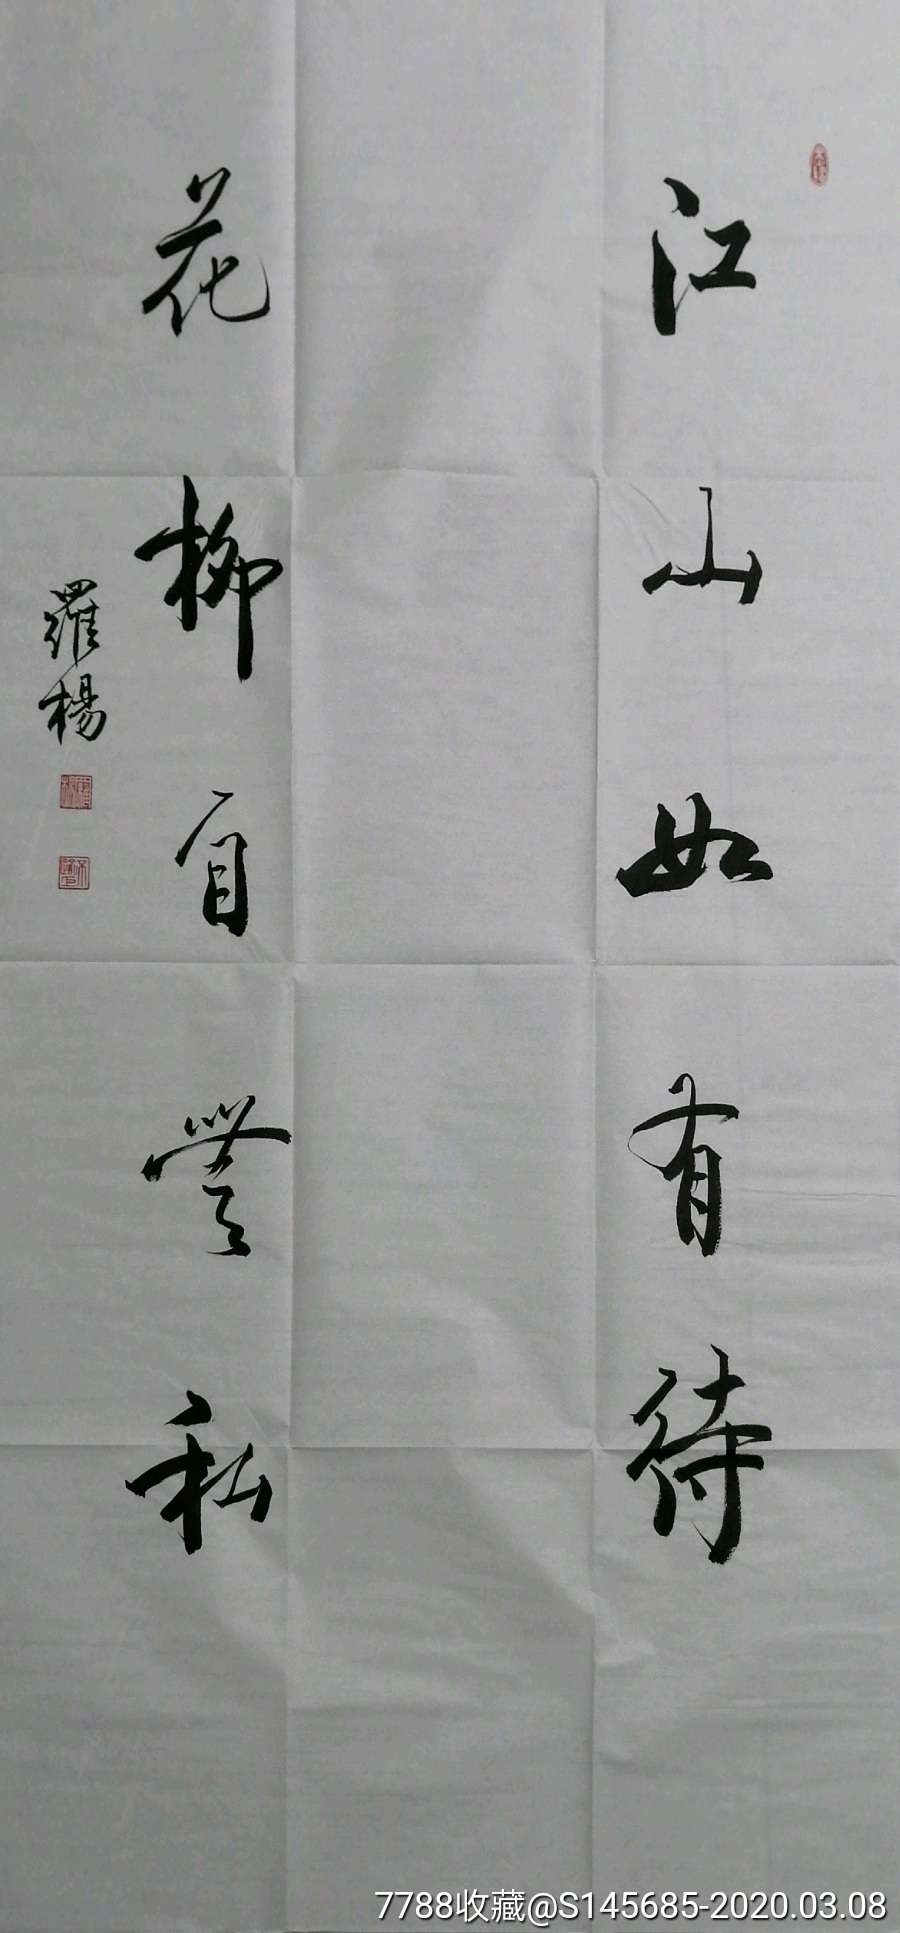 江山如有待
花柳自無私
羅楊
7788收藏@S145685-2020.03.08